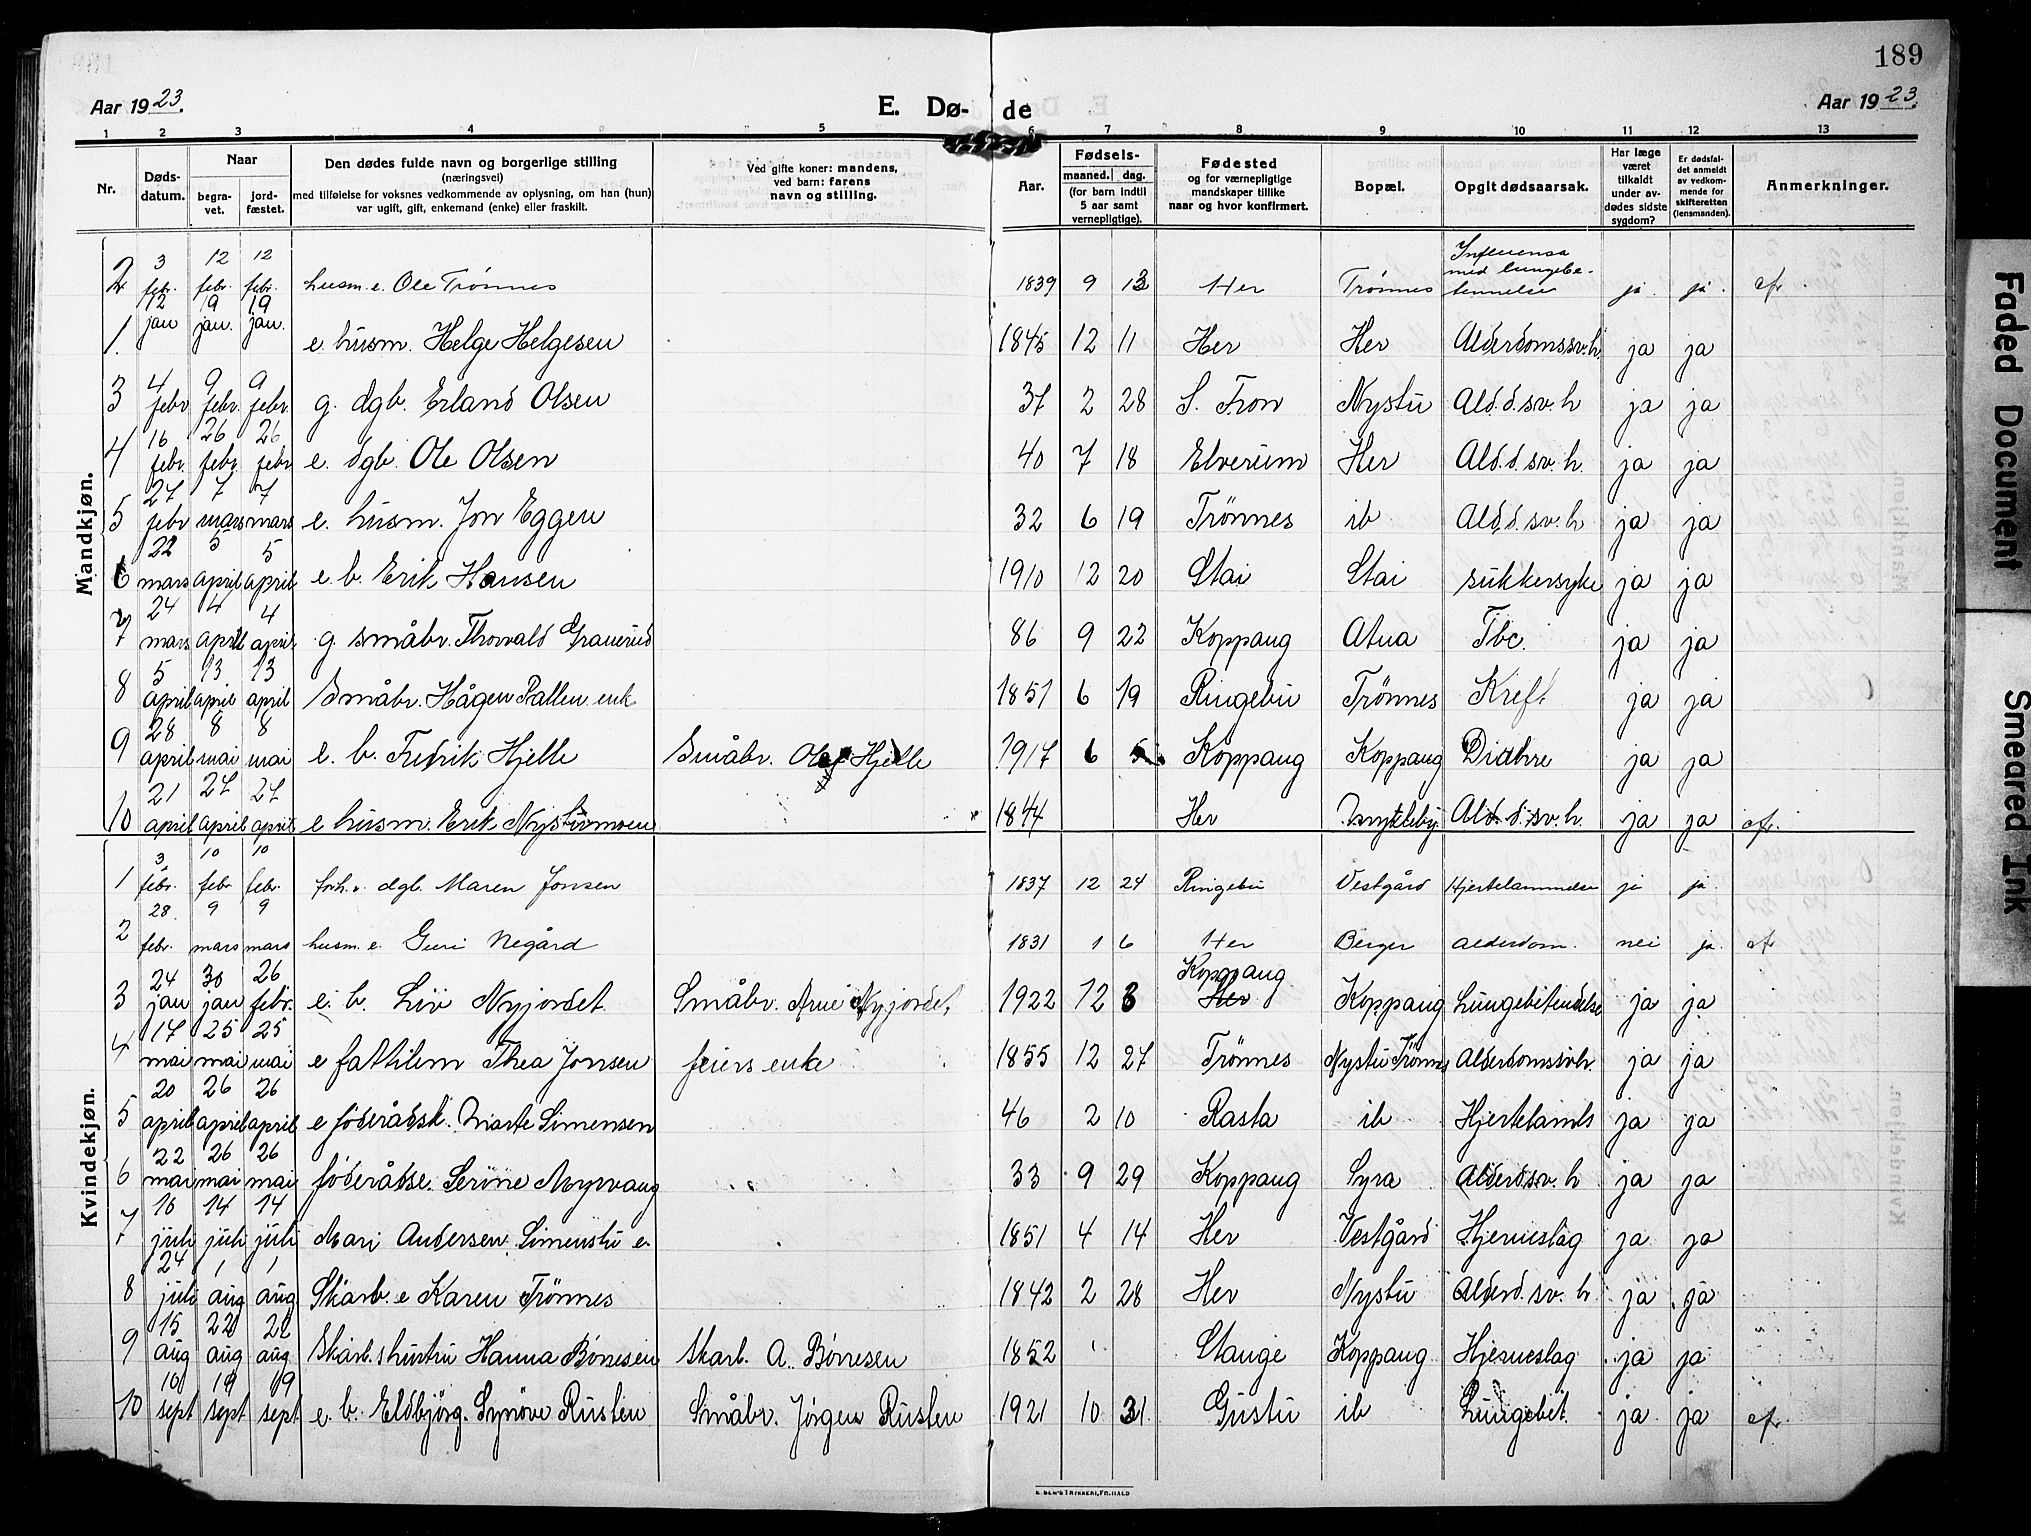 189
Aar 1923.
E. Dø- de
Aar 1923.
1 2 3 4 5 6 7 8 9 10 11 12 13
Nr.
Døds-
datum.
Naar
begra-
vet.
jord-
fæstet.
Den dødes fulde navn og borgerlige stilling
(næringsvei)
med tilføielse for voksnes vedkommende av oplysning, om han (hun)
var ugift, gift, enkemand (enke) eller fraskilt.
Ved gifte koner: mandens,
ved barn: farens
navn og stilling.
Aar.
Fødsels-
maaned. dag.
(for barn indtil
5 aar samt
vernepligtige).
Fødested
og for værnepligtige
mandskaper tillike
naar og hvor konfirmert.
Bopæl.
Opgit dødsaarsak.
Har læge
været
tilkaldt
under av-
dødes sidste
sygdom?
Er dødsfal-
det anmeldt
av vedkom-
mende for
skifteretten
(lensmanden).
Anmerkninger.
Mandkjøn.
2 3 febr. 12 febr. 12 febr. husm. e. Ole Trønnes 1839 9 13 Her Trønnes Influensa med lungebe-tennelse ja. ja. afr.
1. 12 jan 19 jan. 19 jan. e. husm. Helge Helgesen 1845 12 11 Her Her Alderdomssv.h. ja ja
3 4 febr 9 febr. 9 febr. g. dgb. Erland Olsen 37 2 28 S. Fron Nystu Ald.d.sv.h ja ja
4 16 febr. 26 febr. 26 febr e. dgb. Ole Olsen 40 7 18 Elverum Her Ald.d.sv.h. ja ja
5 27 febr 7 mars 7 mars e. husm. Jon Eggen 32 6 19 Trönnes ib Ald.d.sv.h ja ja
6 22 mars 5 april 5 april e. b. Erik Hansen 1910 12 20 Stai Stai sukkersyke ja ja
7 24 mars 4 april 4 april g. småbr. Thorvald Granerud 86 9 22 Koppang Atna Tbc. ja ja
8 5 april 13 april 13 april Småbr. Hågen Pallen enk 1851 6 19 Ringebu Trönnes Kreft ja ja
9 28 april 8 mai 8 mai e. b. Fredrik Hjelle Småbr. Ole Hjelle 1917 6 Koppang Koppang ja ja
10 21 april 27 april 27 april e husm. Erik Nystumoen 1844 Her Ald.d.sv.h. ja ja afr.
Kvindekjøn.
1 3 febr. 10 febr 10 febr. forh.v. dgb. Maren Jonsen 1837 12 24 Ringebu Vestgård Hjertelammelse ja ja.
2 28. febr. 9 mars 9 mars husm. e. Guri Negård 1831 1 6 Her Berger Alderdom. nei ja. afr
3 24 jan 30 jan 26 febr. e. b. Liv Nyjordet Småbr. Arne Nyjordet, 1922 12 8 Koppang Her Koppang Lungebetendelse ja ja
4 17 mai 25 mai 25 mai e fattilem Thea Jonsen feiers enke 1855 12 27 Trönnes Nystu Trönnes Alderdomssvh. ja ja
5 20 april 26 april 26 april e föderådsk. Marte Simensen 46 2 10 Rasta ib Hjertelamls ja ja
6 22 mai 26 mai 26 mai föderådse. Serine Myrvang 33 9 29 Koppang Syra Alderd.sv.h ja ja
7 16 juli 14 juli 14 juli Mari Andersen Simenstu e. 1851 4 14 Her Vestgård Hjerneslag ja ja
8 24 juli 1 aug 1 aug Skarb. e Karen Trönnes 1842 2 28 Her Nystu Alderd.sv.h. ja ja
9 15 aug 22 aug 22 aug Skarb.shustru Hanna Börresen Skarb. A. Börresen 1852 Stange Koppang Hjerneslag ja ja
10 10 sept 19 sept 19 sept e. b. Eldbjörg Synöve Rusten Småbr. Jörgen Rusten 1921 10 31 Gustu ib Lungebet. ja ja afr.
E. SEM'S TRYKKERI, FR.HALD
Faded Document
Smeared Ink